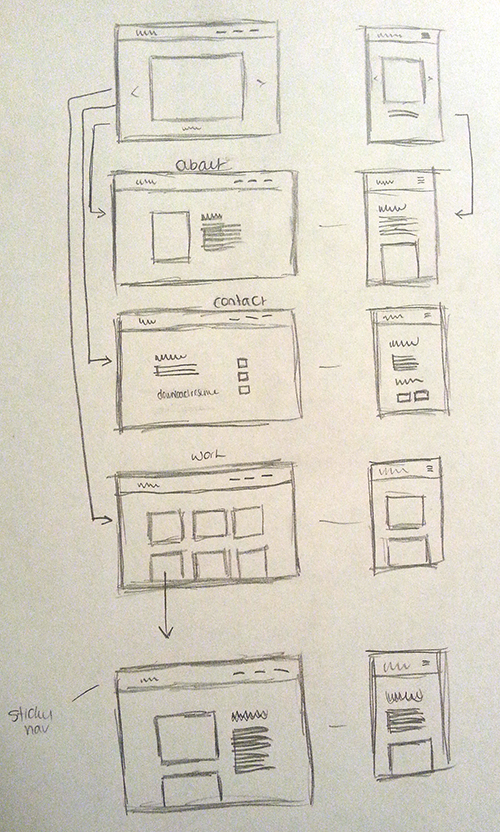 about
contact
download resume
work
sticky
nav